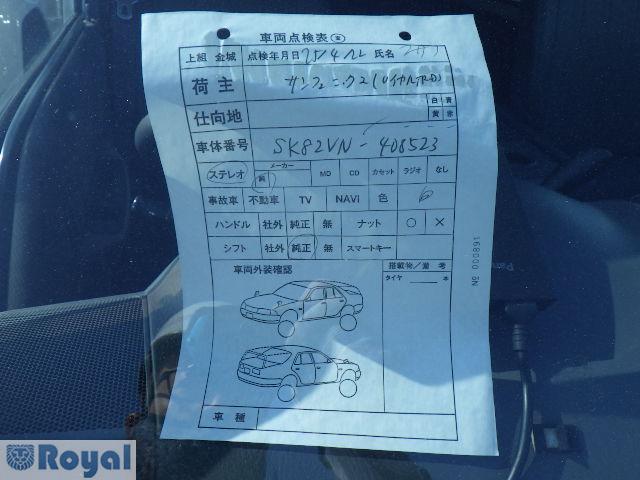 車両点検表
上組 金城 点検年月日 氏名
荷主 サンフェニックス(ロイヤルTRD)
仕向地 白 青
黄 赤
車体番号 SK82VN-408523
ステレオ メーカー 純 MD CD カセット ラジオ なし
事故車 不動車 TV NAVi 色
ハンドル 社外 純正 無 ナット ○ ×
シフト 社外 純正 無 スマートキー
車両外装確認 搭載物/備考
タイヤ 本
車種
№ 000891
Royal